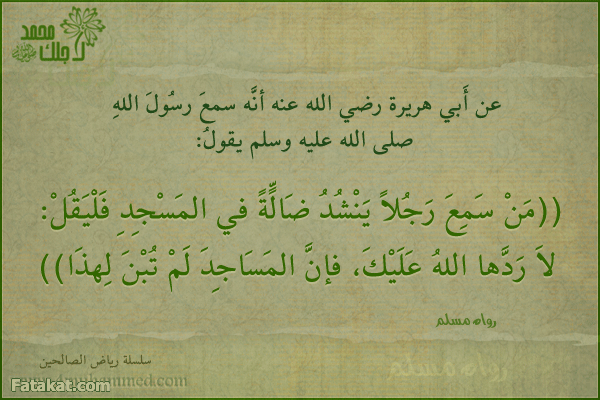 محمد
لاجلك
عن أَبي هريرة رضي الله عنه أنَّه سمعَ رسُولَ اللهِ
صلى الله عليه وسلم يقولُ:
((مَنْ سَمِعَ رَجُلاً يَنْشُدُ ضَالَّةً في المَسْجِدِ فَلْيَقُلْ:
لاَ رَدَّها اللهُ عَلَيْكَ، فإنَّ المَسَاجِدَ لَمْ تُبْنَ لِهذَا))
رواه مسلم
رواه مسلم
سلسلة رياض الصالحين
Fatakat.com